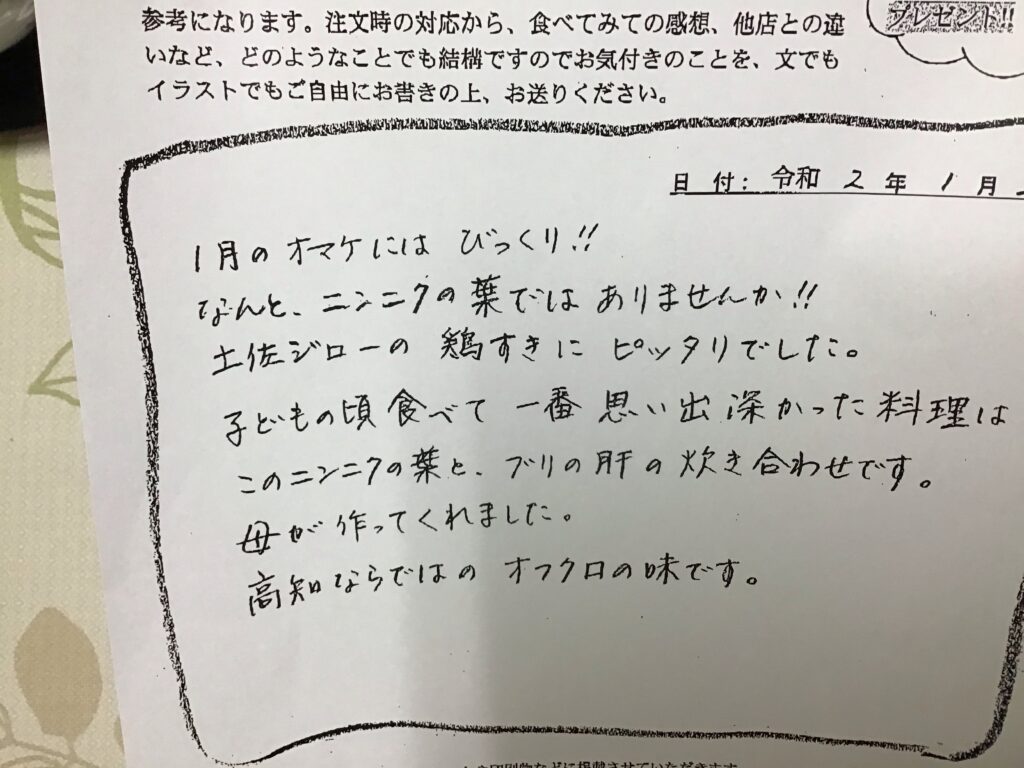 参考になります。注文時の対応から、食べてみての感想、他店との違
いなど、どのようなことでも結構ですのでお気付きのことを、文でも
イラストでもご自由にお書きの上、お送りください。
プレゼント!!
日 付: 令和 2 年 1 月
1月のオマケには びっくり!!
なんと、ニンニクの葉では ありませんか!!
土佐ジローの 鶏すきに ピッタリでした。
子どもの頃 食べて 一番 思い出深かった料理は
このニンニクの葉と、ブリの肝の炊き合わせです。
母が作ってくれました。
高知ならではの オフクロの味です。